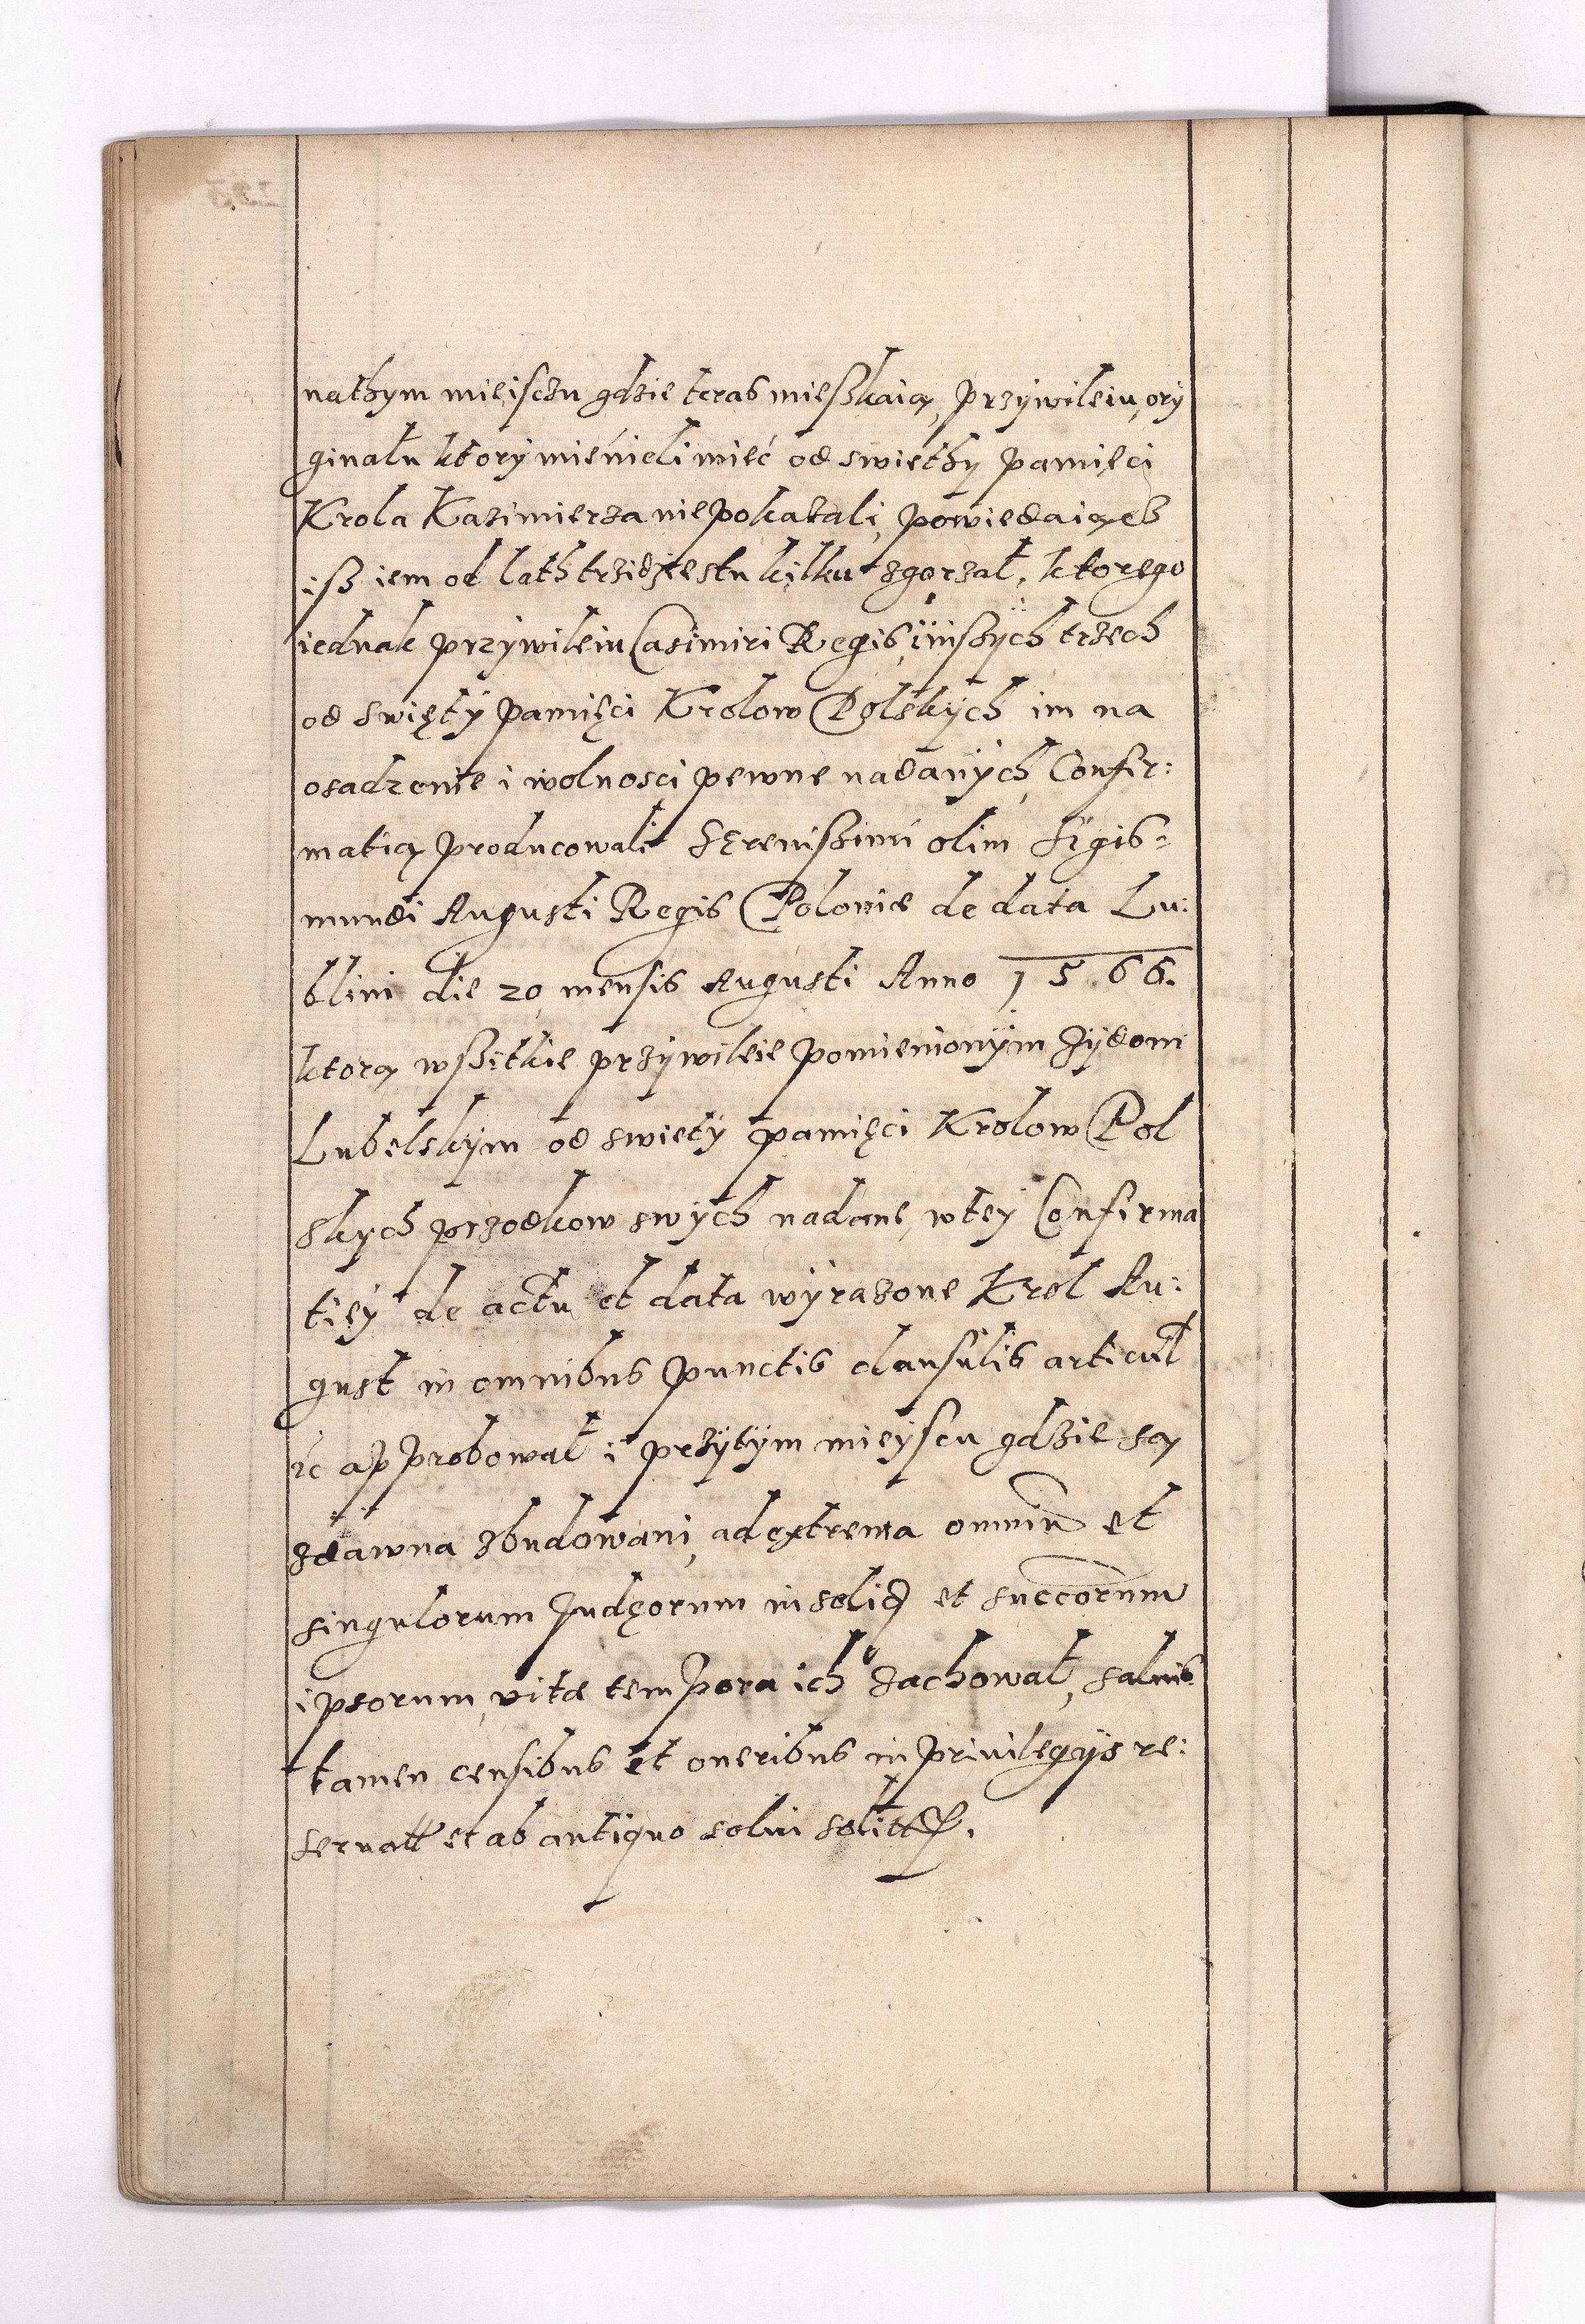 nathym mieisczu gdzie teras mieszkaią, przywileiu ory
ginału ktory mienieli mieć od swiethy pamięci
Krola Kazimierza nie pokazali, powiedaiącz
isz iem od lath trzidziestu kilku zgorzał, ktorego
iednak przywileiu Casimiri Regis, ÿinszÿch trzech
od swiętÿ pamięci Krolow Polskÿch im na
osadzenie i wolnosci pewne nadanÿch, Confir:
matią producowali Sęrenissimi olim Sigis=
mundi Augusti Regis Poloniæ de data Lu:
blini die 20 mensis Augusti Anno 1566.
ktorą wszitkie przÿwileie pomienionÿm Zÿdom
Lubelskÿm od swietÿ pamięci Krolow Pol
skych przodkow swÿch nadane, w tey Confirma
tiey de actu et data wÿrazone Krol Au:
gust in omnibus punctis clausulis articul
ic approbował i przÿtÿm mieÿscu gdzie są
zdawna zbudowani, ad extrema omniu et
singulorum Judęorum in solid et succorum
ipsorum, vitæ tempora ich zachował, saluis
tamen censibus et oneribus in priuilegijs re:
seruatt et ab antiquo solui solitt.